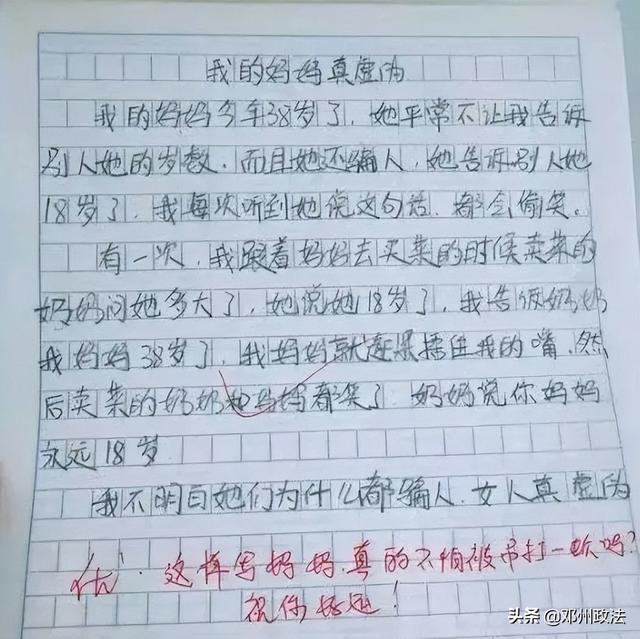 我的妈妈真虚伪
我的妈妈今年38岁了，她平常不让我告诉
别人她的岁数，而且她还骗人，她告诉别人她
18岁了，我每次听到她说这句话，都会偷笑。
有一次，我跟着妈妈去买菜的时候卖菜的
奶奶问她多大了，她说她18岁了，我告诉奶奶
我妈妈38岁了，我妈妈就赶紧捂住我的嘴，然
后卖菜的奶奶和妈妈都笑了，奶奶说你妈妈
永远18岁
我不明白她们为什么都骗人，女人真虚伪
优，这样写妈妈，真的不怕被吊打一顿吗？
祝你好运！
头条 @邓州政法